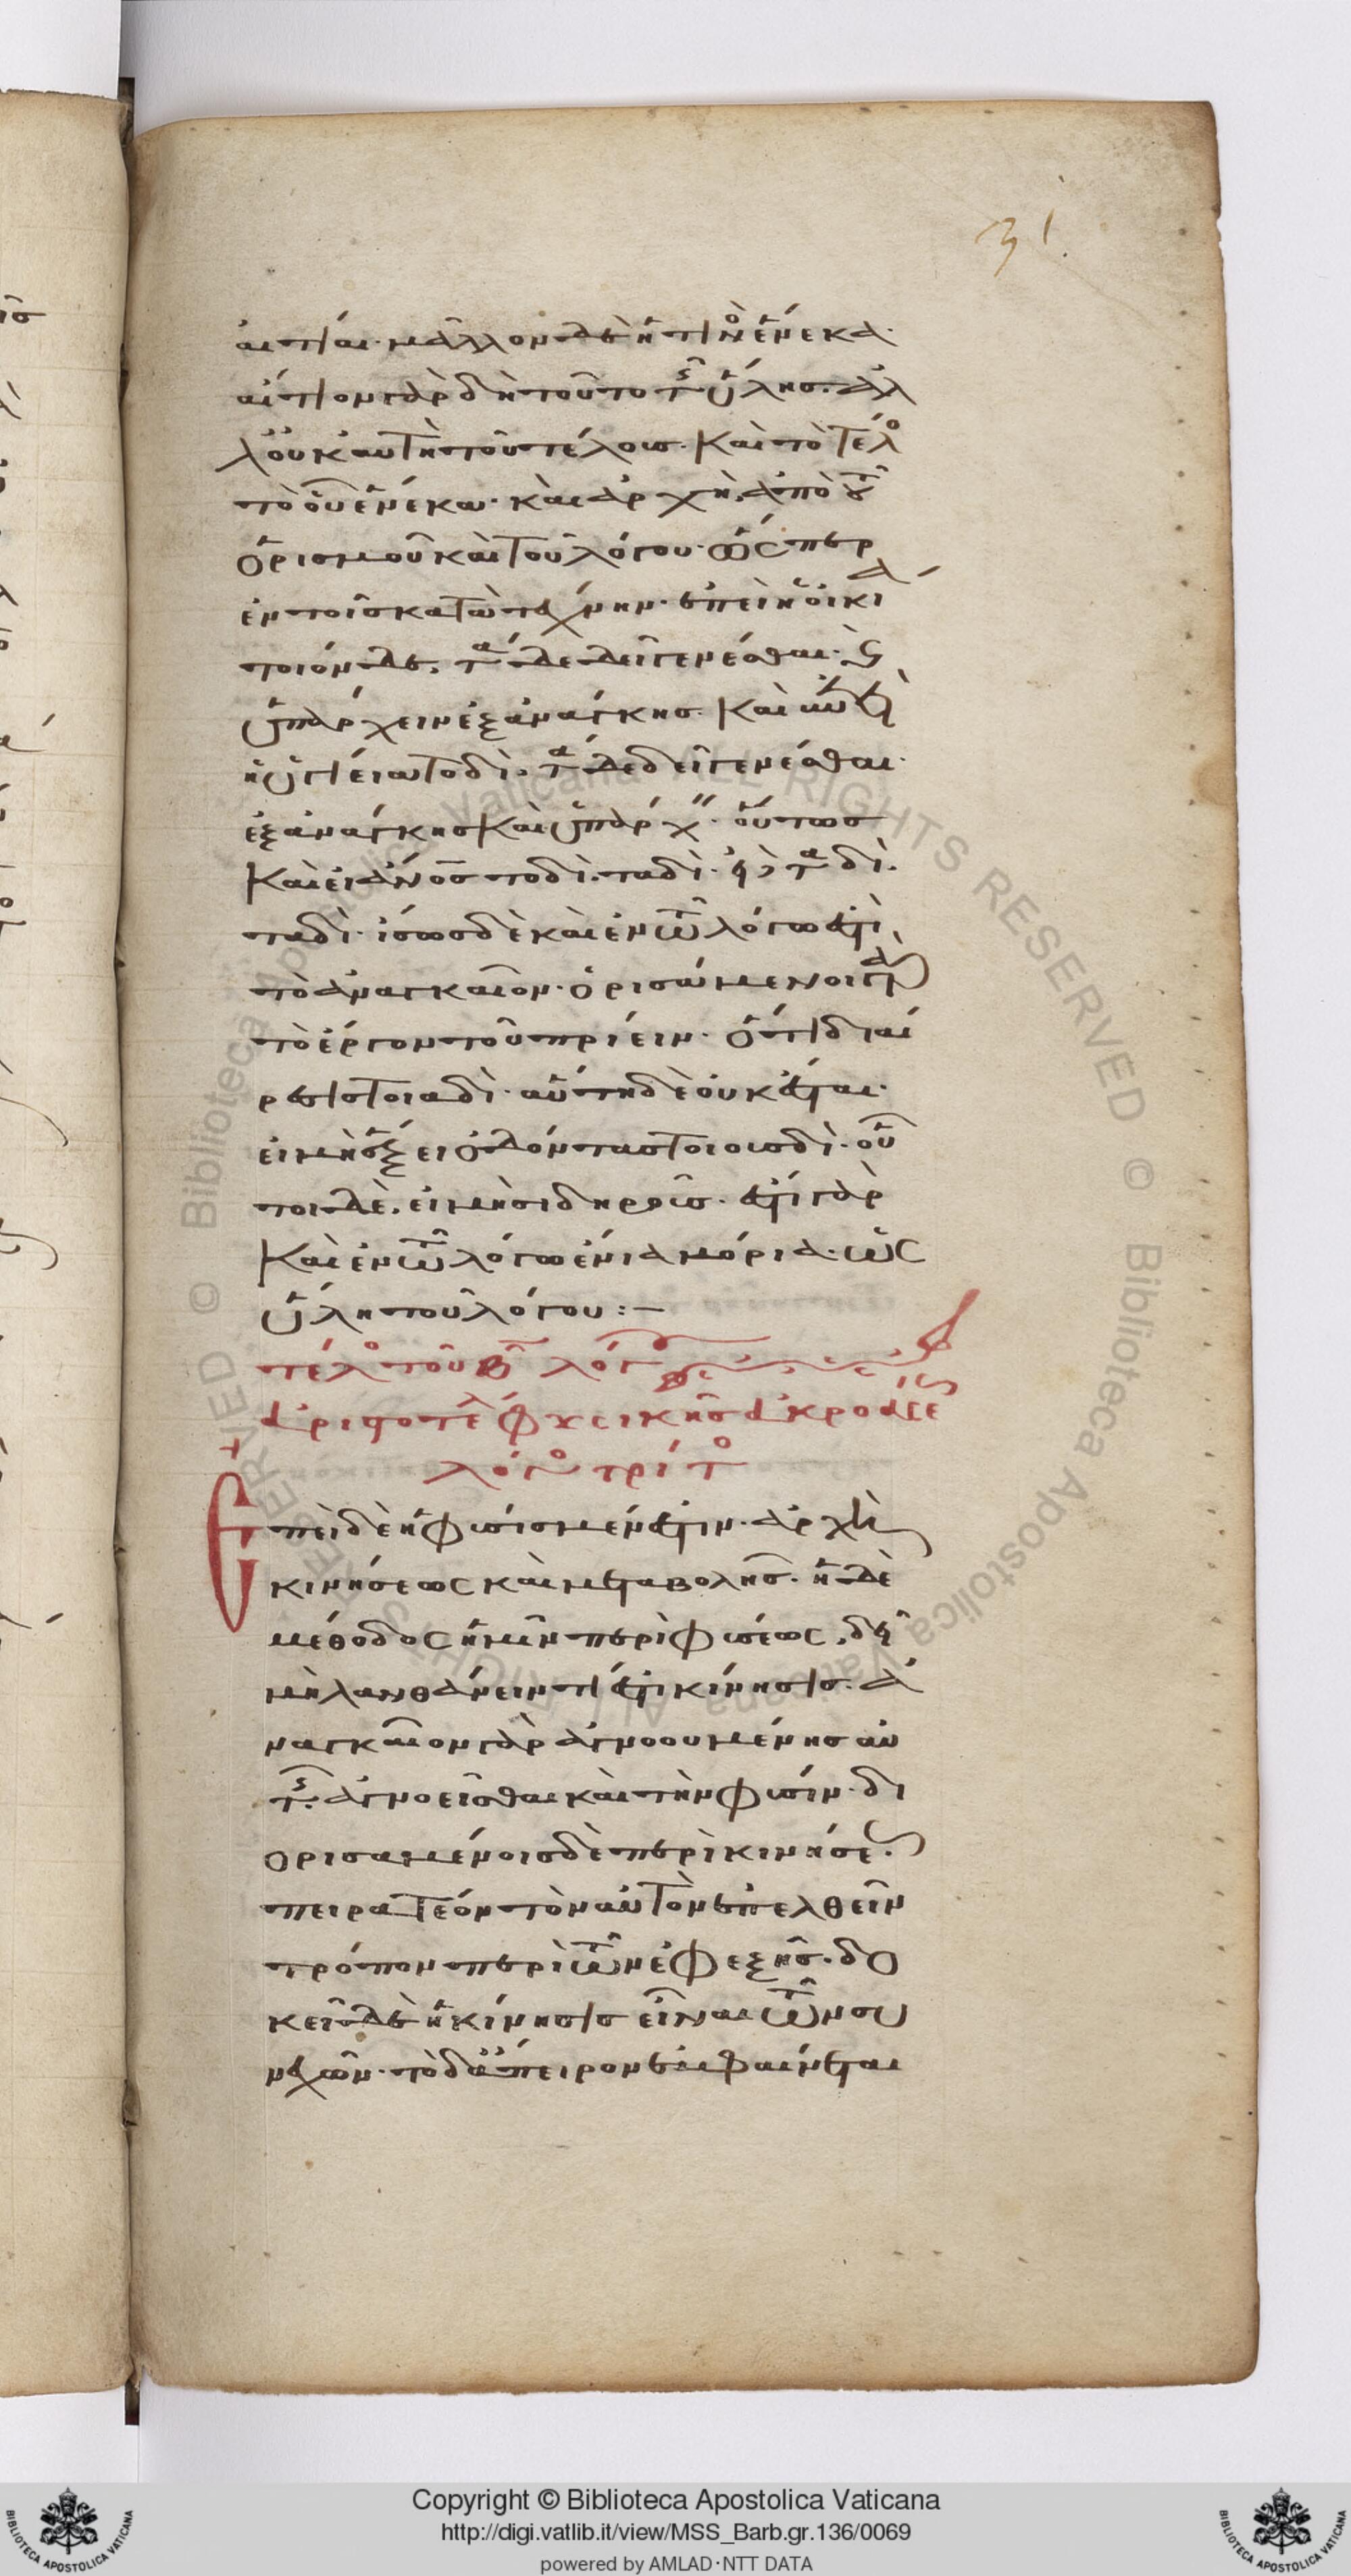 31
αἰτίαι· μᾶλλον δὲ ἡ τίνος ἕνεκα·
αἴτιον γὰρ δὴ τοῦτο τῆς ὕλης· ἀλ
λ' οὐκ αὐτὴ τοῦ τέλους· καὶ τὸ τέλος
τὸ οὗ ἕνεκα· καὶ ἀρχὴ, ἀπὸ τοῦ
ὁρισμοῦ καὶ τοῦ λόγου· ὥσπερ
ἐν τοῖς κατὰ τέχνην· ἐπεὶ ἡ οἰκία
τοιόνδε, τάδε δεῖ γενέσθαι· καὶ
ὑπάρχειν ἐξ ἀνάγκης· καὶ ἐπεὶ
ἡ ὑγίεια τοδὶ· τάδε δεῖ γενέσθαι·
ἐξ ἀνάγκης καὶ ὑπάρχειν· οὕτως
καὶ εἰ ἄνος τοδὶ· ταδὶ· εἰ ταδὶ·
ταδὶ· ἴσως δὲ καὶ ἐν τῷ λόγῳ ἐστὶ,
τὸ ἀναγκαῖον· ὁρισαμένοις γὰρ
τὸ ἔργον τοῦ πρίειν· ὅτι διαί
ρεσις τοιαδὶ· αὕτη δὲ οὐκ ἔσται·
εἰ μὴ ἕξει ὀδόντας τοιουσδὶ· οὗ
τοι δὲ, εἰ μὴ σιδηροῦς· ἔστι γὰρ
καὶ ἐν τῷ λόγῳ ἔνια μόρια· ὡς
ὕλη τοῦ λόγου:—
τέλος τοῦ β λόγου
ἀριστοτέλους φυσικῆς ἀκροάσεως
λόγος τρίτος
Ἐπεὶ δὲ ἡ φύσις μέν ἐστιν· ἀρχὴ
κινήσεως καὶ μεταβολῆς· ἡ δὲ
μέθοδος ἡμῖν περὶ φύσεως, δεῖ
μὴ λανθάνειν τί ἐστι κίνησις· ἀ
ναγκαῖον γὰρ ἀγνοουμένης αὐ
τῆς· ἀγνοεῖσθαι καὶ τὴν φύσιν· δι
ορισαμένοις δὲ περὶ κινήσεως·
πειρατέον τὸν αὐτὸν ἐπελθεῖν
τρόπον περὶ τῶν ἐφεξῆς· δο
κεῖ δὲ ἡ κίνησις εἶναι τῶν συ
νεχῶν· τὸ δ' ἄπειρον ἐμφαίνεται
Copyright © Biblioteca Apostolica Vaticana
http://digi.vatlib.it/view/MSS_Barb.gr.136/0069
powered by AMLAD·NTT DATA